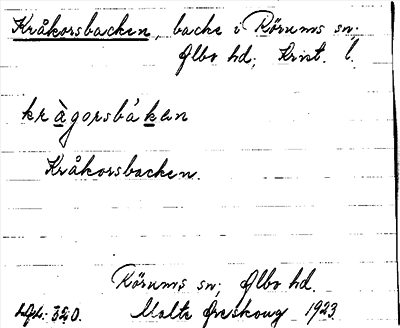 Kråkorsbacken, backe i Rörums sn;
Albo hd; Krist. l.
kràgorsbákan
Kråkorsbacken.
Rörums sn; Albo hd.
Malte Areskoug 1923